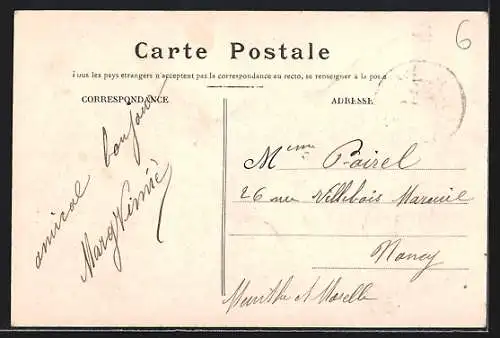 6
Carte Postale
Tous les pays étrangers n'acceptent pas la correspondance au recto, se renseigner à la poste
CORRESPONDANCE
ADRESSE
amical bonjour
Marg
Mme Poirel
26 rue Villebois Mareuil
Nancy
Meurthe et Moselle